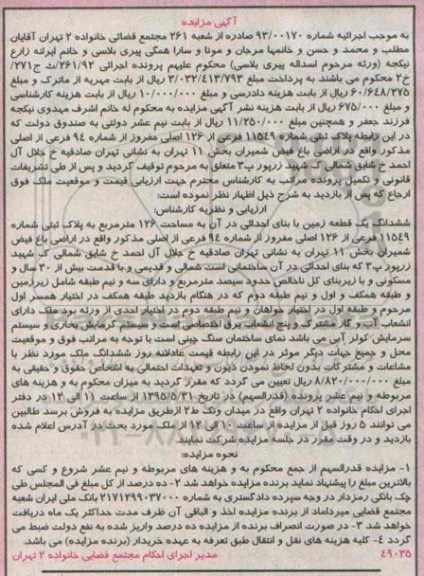 آگهی مزایده
به موجب اجرائیه شماره ۹۳/۰۰۱۷۰ صادره از شعبه ۲۶۱ مجتمع قضائی خانواده ۲ تهران آقایان
مطلب و محمد و حسن و خانمها مرجان و مونا و سارا همگی پیری بلاسی و خانم ایرانه زارع
نیکجه (ورثه مرحوم اسداله پیری بلاسی) محکوم علیهم پرونده اجرائی ۲۶۱/۹۲/ث ج/۲۷۱
خ۲ محکوم می باشند به پرداخت مبلغ ۳/۰۳۲/۴۱۳/۷۹۳ ریال از بابت مهریه از ماترک و مبلغ
۶۰/۶۴۸/۲۷۵ ریال از بابت هزینه دادرسی و مبلغ ۱۰/۰۰۰/۰۰۰ ریال از بابت هزینه کارشناسی
و مبلغ ۶۷۵/۰۰۰ ریال از بابت هزینه نشر آگهی مزایده به محکوم له خانم اشرف مهدوی نیکجه
فرزند جعفر و همچنین مبلغ ۱۱/۲۵۰/۰۰۰ ریال از بابت نیم عشر دولتی به صندوق دولت که
در این رابطه پلاک ثبتی شماره ۱۱۵۴۹ فرعی از ۱۲۶ اصلی مفروز از شماره ۹۴ فرعی از اصلی
مذکور واقع در اراضی باغ فیض شمیران بخش ۱۱ تهران به نشانی تهران صادقیه خ جلال آل
احمد خ شایق شمالی ک شهید زرپور پ۳ متعلق به مرحوم توقیف گردید و پس از طی تشریفات
قانونی و تکمیل پرونده مراتب به کارشناس محترم جهت ارزیابی قیمت و موقعیت ملک فوق
ارجاع که پس از بازدید به شرح ذیل اظهار نظر نموده است:
ارزیابی و نظریه کارشناس:
ششدانگ یک قطعه زمین با بنای احداثی در آن به مساحت ۱۲۶ مترمربع به پلاک ثبتی شماره
۱۱۵۴۹ فرعی از ۱۲۶ اصلی مفروز از شماره ۹۴ فرعی از اصلی مذکور واقع در اراضی باغ فیض
شمیران بخش ۱۱ تهران به نشانی تهران صادقیه خ جلال آل احمد خ شایق شمالی ک شهید
زرپور پ۳ که بنای احداثی در آن ساختمانی است شمالی و قدیمی و با قدمت بیش از ۳۰ سال و
مسکونی و با زیربنای کل ناخالص حدود سیصد مترمربع و دارای سه و نیم طبقه شامل زیرزمین
و طبقه همکف و اول و نیم طبقه دوم که در هنگام بازدید طبقه همکف در اختیار همسر اول
مرحوم و طبقه اول در اختیار خواهان و نیم طبقه دوم در اختیار احدی از ورثه بود ملک دارای
انشعاب آب و گاز مشترک و پنج انشعاب برق اختصاصی است و سیستم گرمایش بخاری و سیستم
سرمایش کولر آبی می باشد نمای ساختمان سنگ چینی است با توجه به مراتب فوق و موقعیت
محل و جمیع جهات دیگر موثر در این رابطه قیمت عادلانه روز ششدانگ ملک مورد نظر با
مشاعات و مشترکات بدون لحاظ نمودن دیون و تعهدات احتمالی به اشخاص حقوق و حقیقی به
مبلغ ۸/۸۲۰/۰۰۰/۰۰۰ ریال تعیین می گردد که مقرر گردید به میزان محکوم به و هزینه های
مربوطه و نیم عشر پرونده (قدرالسهم) در تاریخ ۱۳۹۵/۵/۳۱ از ساعت ۱۱ الی ۱۲ در دفتر
اجرای احکام خانواده ۲ تهران واقع در میدان ونک ط۲ ازطریق مزایده به فروش برسد طالبین
می توانند ۵ روز قبل از مزایده از ساعت ۱۰ الی ۱۲ از ملک مورد بحث در آدرس اعلام شده
بازدید و در وقت مقرر در جلسه مزایده شرکت نمایند
نحوه مزایده:
۱- مزایده قدرالسهم از جمع محکوم به و هزینه های مربوطه و نیم عشر شروع و کسی که
بالاترین مبلغ را پیشنهاد نماید برنده مزایده خواهد شد ۲- ده درصد از کل مبلغ فی المجلس طی
چک بانکی رمزدار در وجه سپرده دادگستری به شماره ۲۱۷۱۲۹۹۰۳۷۰۰۰ بانک ملی ایران شعبه
مجتمع قضایی میرداماد از برنده مزایده اخذ و الباقی آن ظرف مدت حداکثر یک ماه دریافت
خواهد شد ۳- در صورت انصراف برنده از مزایده ده درصد واریز شده به نفع دولت ضبط می
گردد ۴- کلیه هزینه های نقل و انتقال طبق تعرفه به عهده خریدار (برنده مزایده) می باشد.
۴۹۰۳۵ مدیر اجرای احکام مجتمع قضایی خانواده ۲ تهران